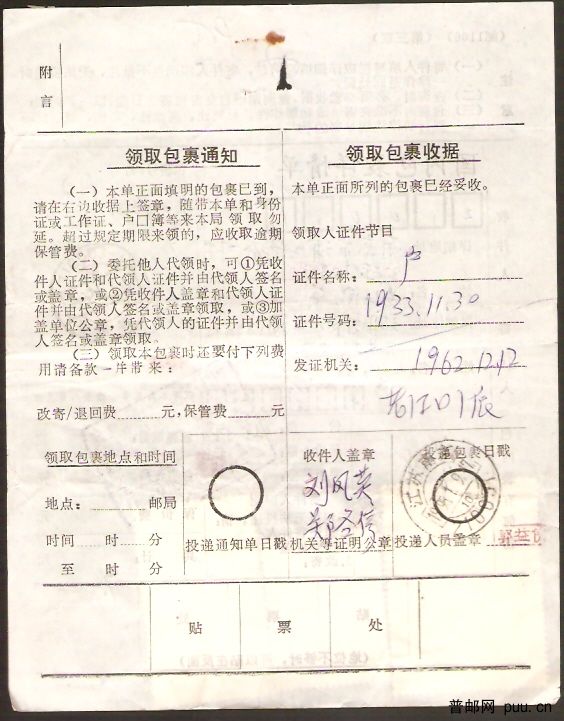 附言
领取包裹通知
（一）本单正面填明的包裹已到，
请在右边收据上签章，随带本单和身份
证或工作证、户口簿等来本局领取勿
延。超过规定期限来领的，应收取逾期
保管费。
（二）委托他人代领时，可①凭收
件人证件和代领人证件并由代领人签名
或盖章，或②凭收件人盖章和代领人证
件并由代领人签名或盖章领取，或③加
盖单位公章，凭代领人的证件并由代领
人签名或盖章领取。
（三）领取本包裹时还要付下列费
用请备款一并带来：
改寄/退回费 元，保管费 元
领取包裹收据
本单正面所列的包裹已经妥收。
领取人证件节目
证件名称： 户
证件号码： 1933.11.30
发证机关： 1962.12.12
领取包裹地点和时间
地点： 邮局
时间 时 分
至 时 分
投递通知单日戳
收件人盖章
刘风英
机关等证明公章
投递包裹日戳
江苏
投递人员盖章
贴 票 处
普邮网 puu.cn